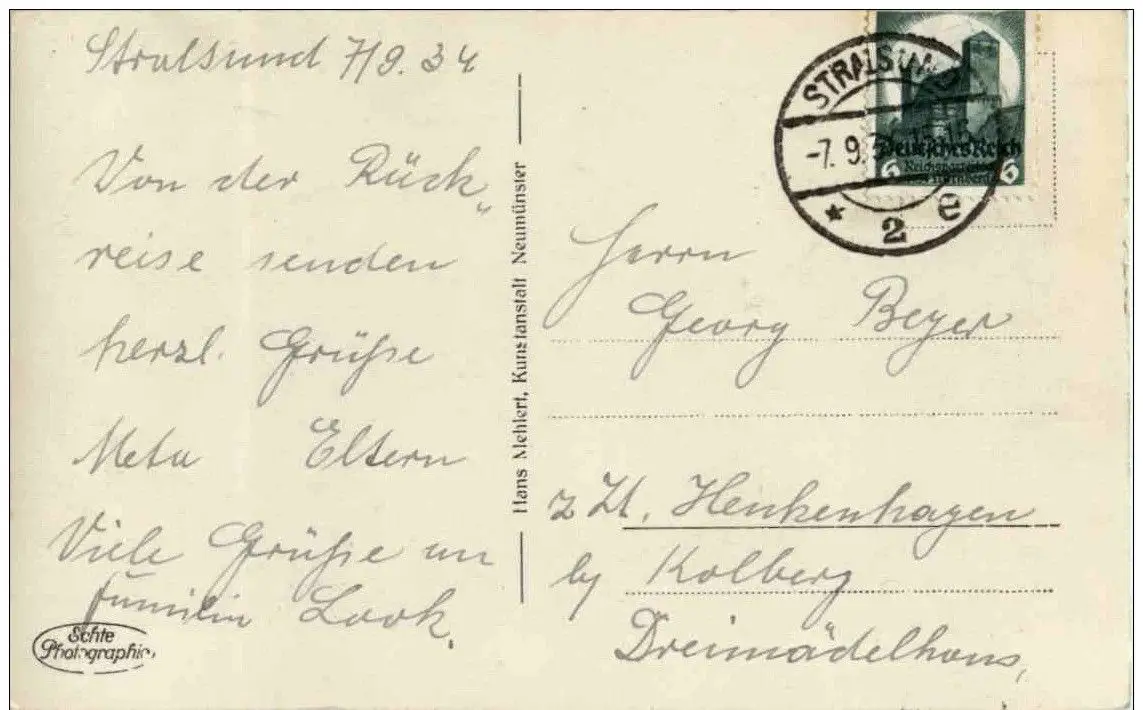 Stralsund 7/9.34
Von der Rück„
reise senden
herzl. Grüße
Meta Eltern
Viele Grüße an
Familie Look.
Echte
Photographie
Hans Mehlert, Kunstanstalt Neumünster
STRALSUND
-7.9.
* 2 e
Deutsches Reich
6 6
Herrn
Georg Beyer
z Zt. Henkenhagen
by Kolberg
Dreimädelhaus,